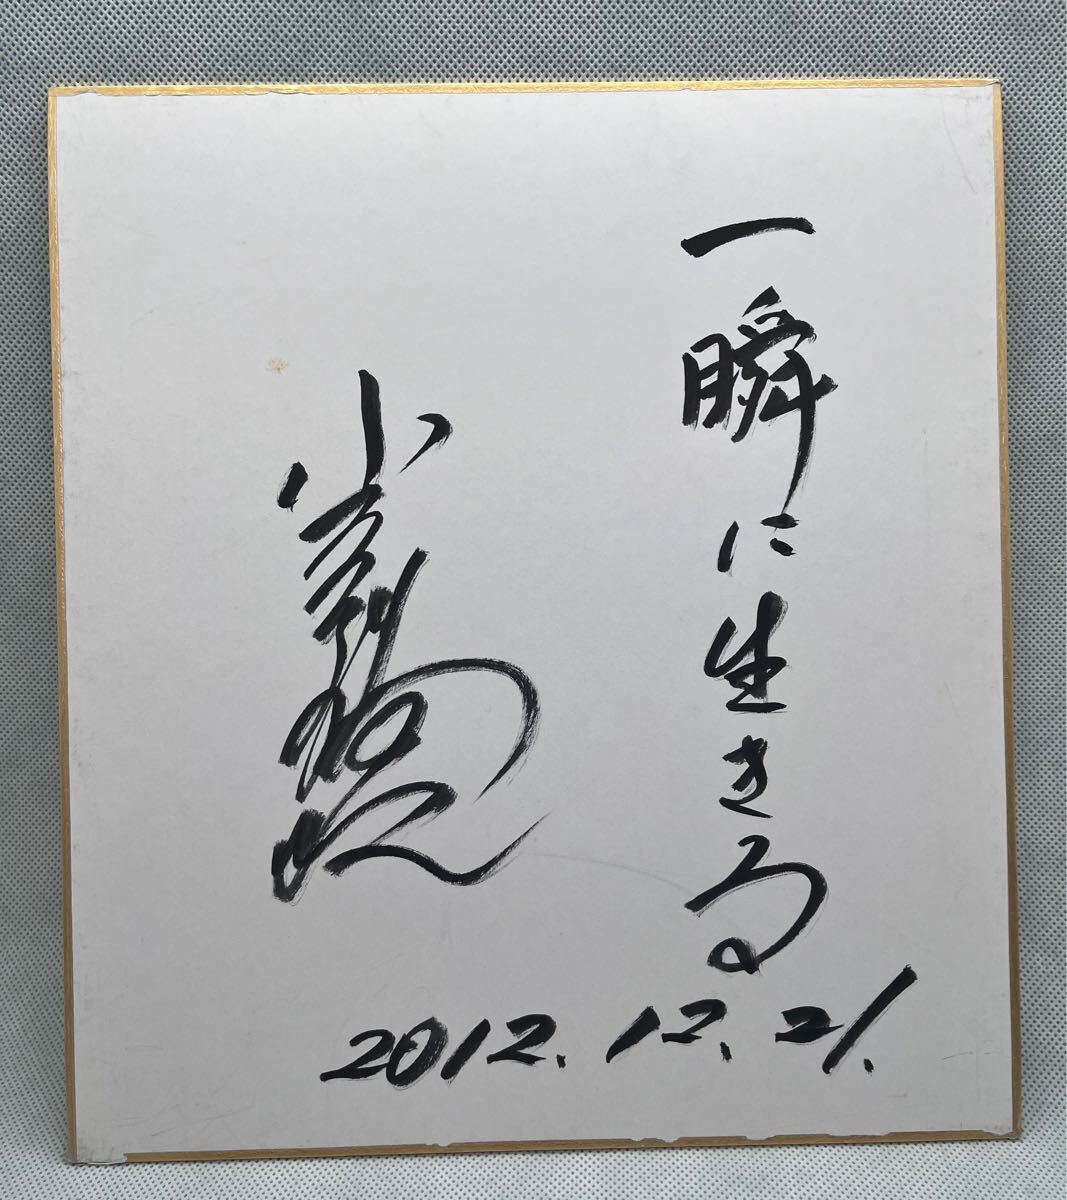 一瞬に生きる
小
2012.12.21.